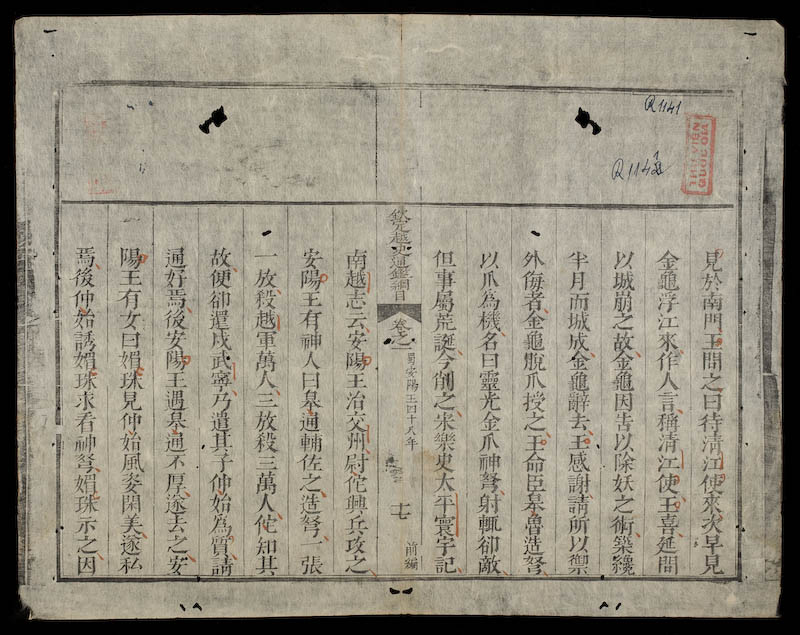 見於南門王問之曰待清江使來次早見
金龜浮江來作人言稱清江使王喜延問
以城崩之故金龜因告以除妖之術築纔
半月而城成金龜辭去王感謝請所以禦
外侮者金龜脫爪授之王命臣皋魯造弩
以爪為機名曰靈光金爪神弩射輒卻敵
但事屬荒誕今削之宋樂史太平寰宇記
欽定越史通鑑綱目
卷之一
蜀安陽王四十八年
十七
前編
南越志云安陽王治交州尉佗興兵攻之
安陽王有神人曰皋通輔佐之造弩一張
一放殺越軍萬人三放殺三萬人佗知其
故便卻還戍武寧乃遣其子仲始為質請
通好焉後安陽王遇皋通不厚遂去之安
陽王有女曰媚珠見仲始風姿閑美遂私
焉後仲始誘媚珠求看神弩媚珠示之因
R1141
R1142